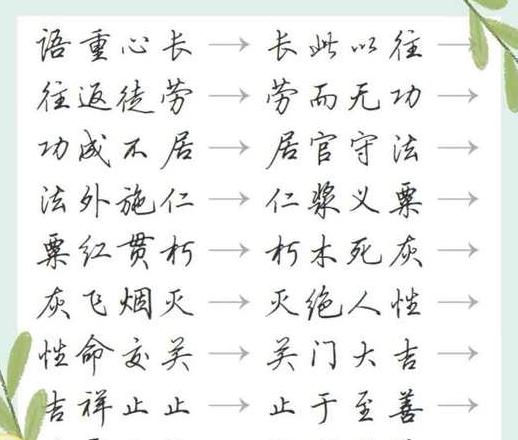 语重心长→长此以往→
往返徒劳→劳而无功→
功成不居→居官守法→
法外施仁→仁浆义粟→
粟红贯朽→朽木死灰→
灰飞烟灭→灭绝人性→
性命交关→关门大吉→
吉祥止止→止于至善→